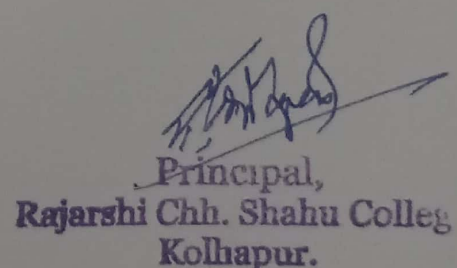 Principal,
Rajarshi Chh. Shahu Colleg
Kolhapur.